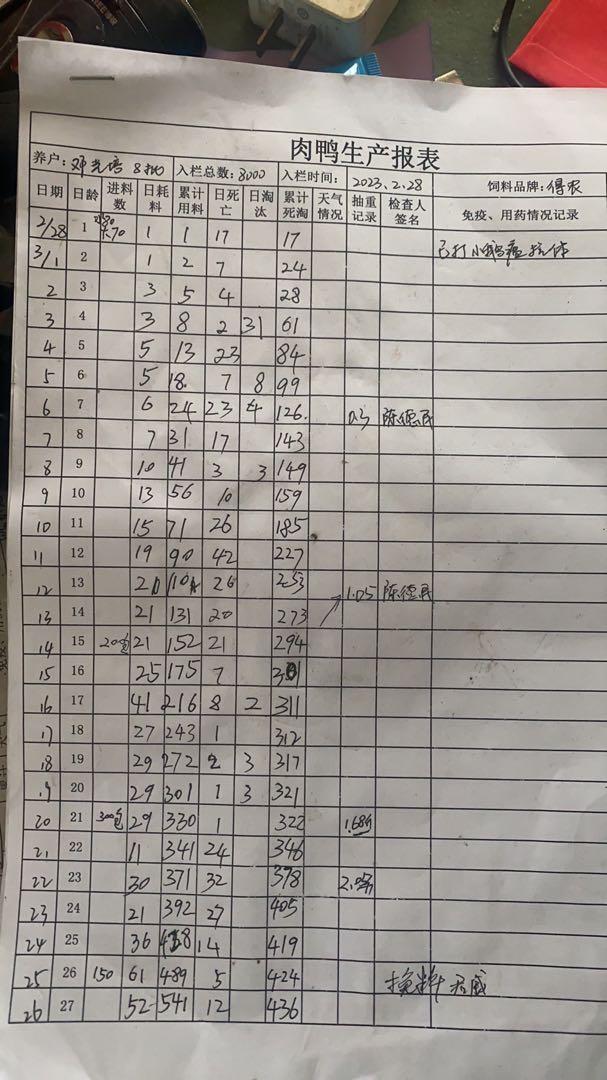 肉鸭生产报表
养户: 8批 入栏总数: 8000 入栏时间: 2023.2.28 饲料品牌: 得农
日期 日龄 进料数 日耗料 累计用料 日死亡 日淘汰 累计死淘 天气情况 抽重记录 检查人签名 免疫、用药情况记录
2/28 1 1 1 17 17
3/1 2 1 2 7 24 已打小鸭瘟抗体
2 3 3 5 4 28
3 4 3 8 2 31 61
4 5 5 13 23 84
5 6 5 18. 7 8 99
6 7 6 24 23 4 126. 0.3 陈德民
7 8 7 31 17 143
8 9 10 41 3 3 149
9 10 13 56 10 159
10 11 15 71 26 185
11 12 19 90 42 227
12 13 20 26 253 1.05 陈德民
13 14 21 131 20 273
14 15 200包 21 152 21 294
15 16 25 175 7 301
16 17 41 216 8 2 311
17 18 27 243 1 312
18 19 29 272 2 3 317
19 20 29 301 1 3 321
20 21 300包 29 330 1 322
21 22 11 341 24 346
22 23 30 371 32 378
23 24 21 392 27 405
24 25 36 14 419
25 26 150 61 489 5 424 换料
26 27 52 541 12 436